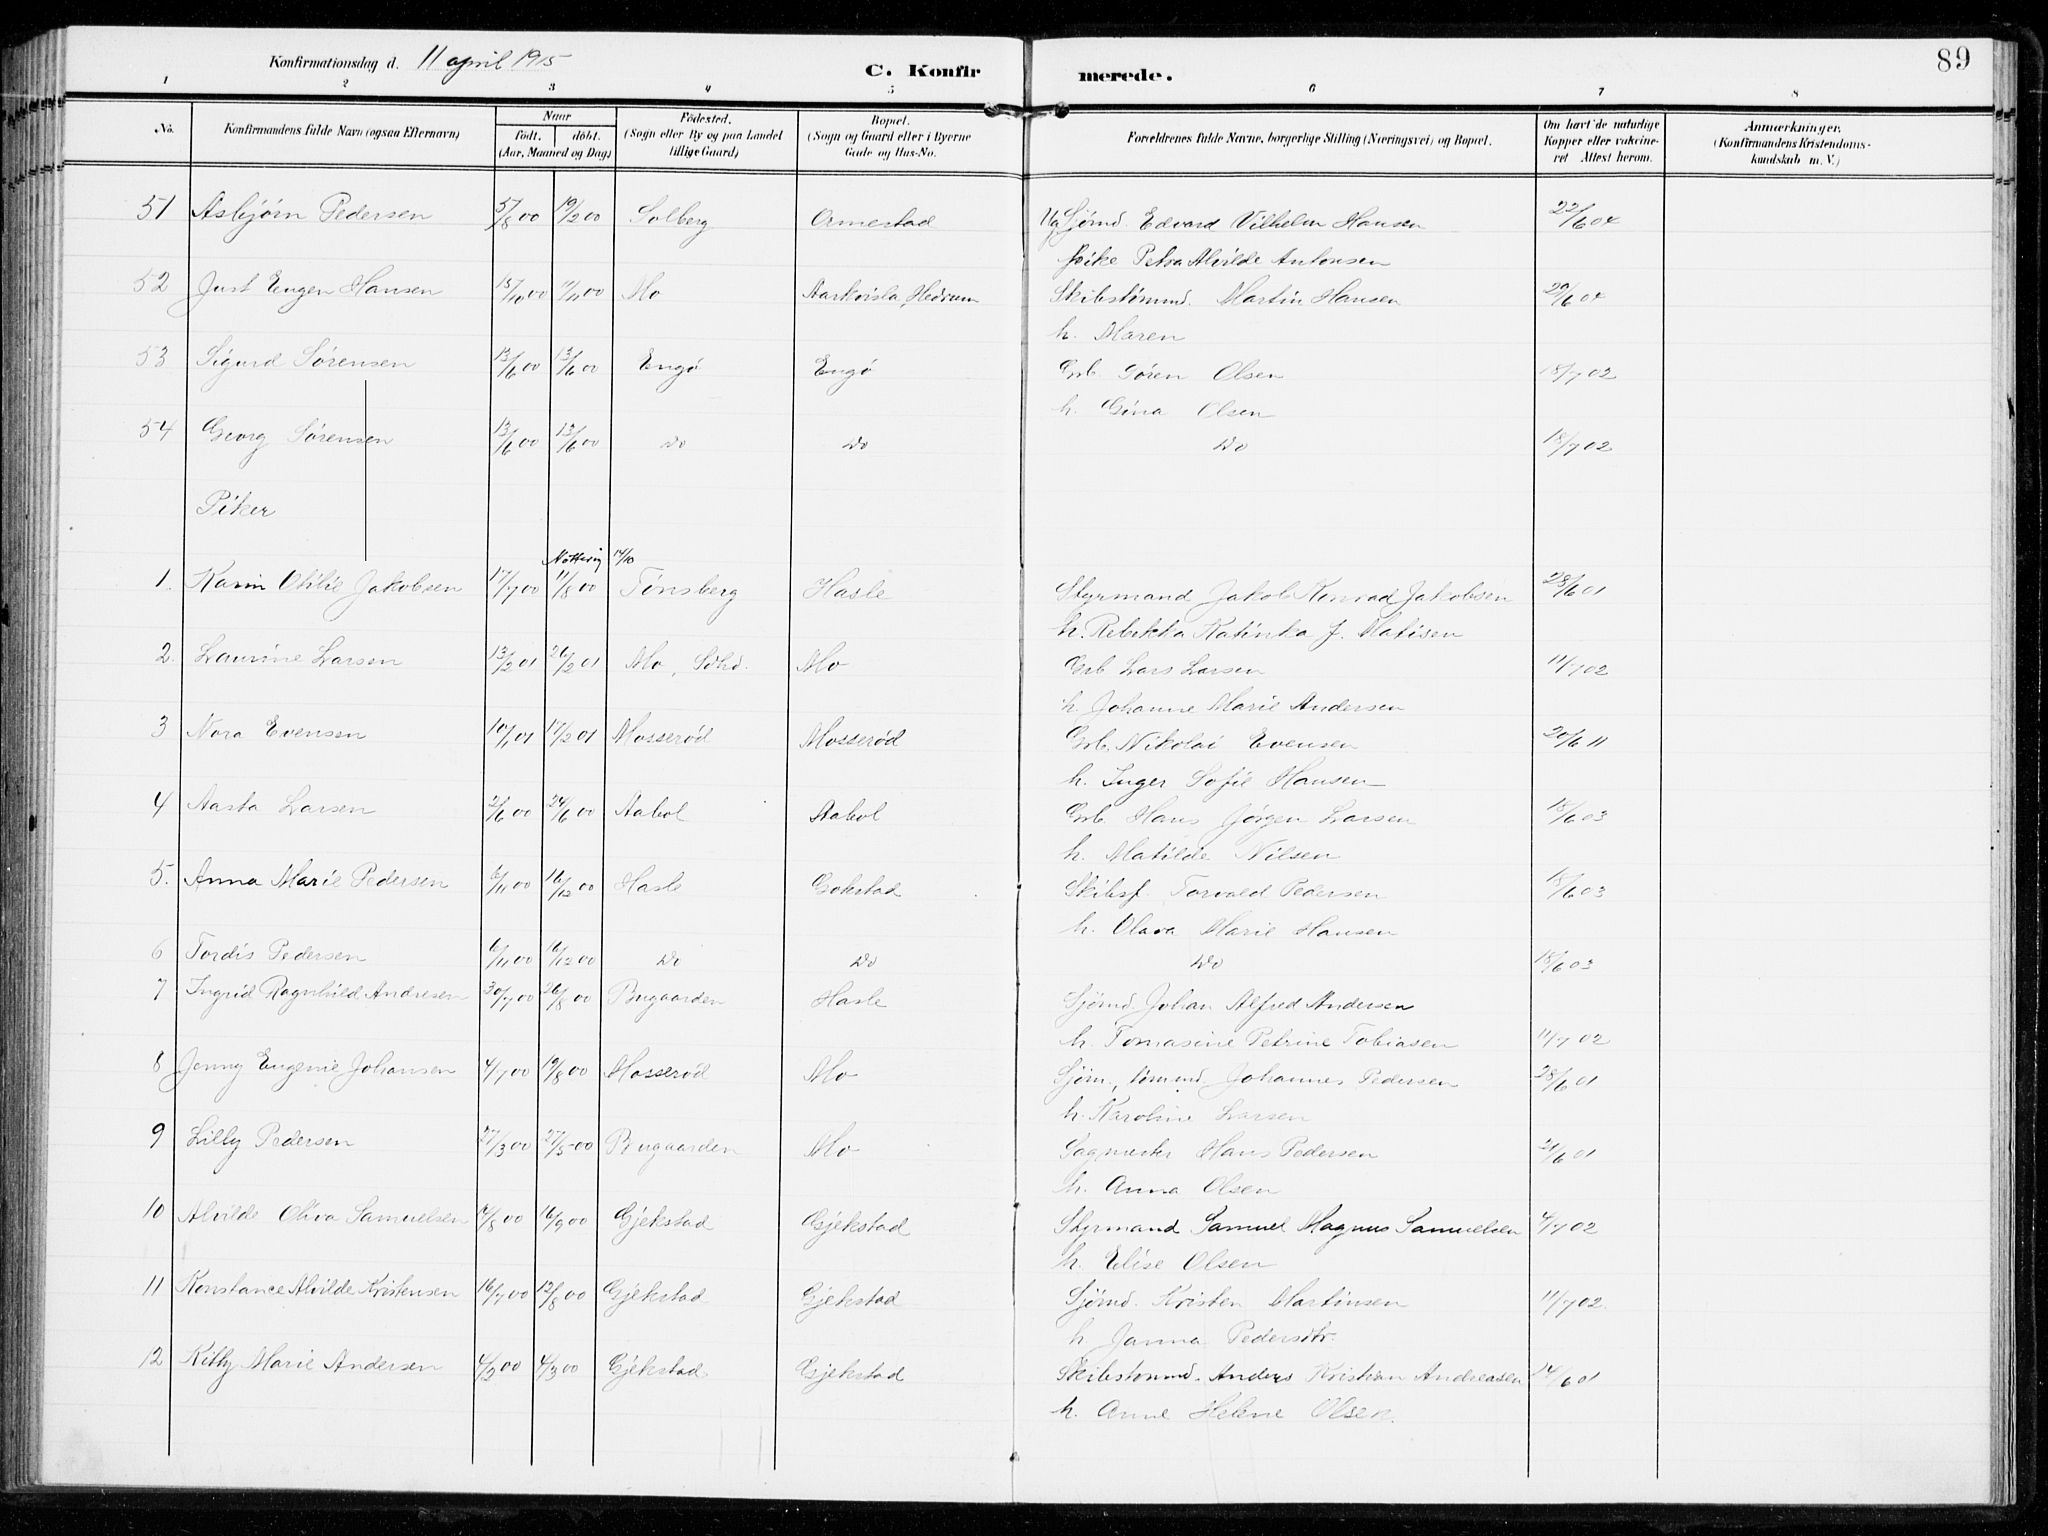 Konfirmationsdag d. 11 april 1915 C. Konfirmerede. 89
1 2 3 4 5 6 7 8
No. Konfirmandens fulde Navn (ogsaa Efternavn) Naar født. døbt. (Aar, Maaned og Dag) Fødested. (Sogn eller By og paa Landet tillige Gaard) Bopæl. (Sogn og Gaard eller i Byerne Gade og Hus-No. Forældrenes fulde Navne, borgerlige Stilling (Næringsvei) og Bopæl. Om havt de naturlige Kopper eller vakcineret. Attest herom. Anmærkninger. (Konfirmandens Kristendomskundskab m. V.)
51 Asbjørn Pedersen /8 00 19/2 00 Solberg Ormestad Ug Sjømd. Edvard Vilhelm Hansen 22/6 04
Pike Petra Alvilde Antonsen
52 Just Eugen Hansen 15/10 00 11/11 00 Mo Aarkvisla, Hedrum Skibstømmd. Martin Hansen 29/6 04
h. Maren
53 Sigurd Sørensen 13/6 00 13/6 00 Engø Engø Grb. Søren Olsen 18/7 02
h. Gina Olsen
54 Georg Sørensen 13/6 00 13/6 00 Do Do Do 18/7 02
Piker
Nøtterøy 14/10
1. Karin Othilie Jakobsen 17/7 00 11/8 00 Tønsberg Hasle Styrmand Jakob Konrad Jakobsen 28/6 01
h. Rebekka Katinka J. Matisen
2. Laurine Larsen 13/2 01 26/2 01 Mo, Sdhd. Mo Grb Lars Larsen 11/7 02
h. Johanne Marie Andersen
3 Nora Evensen 10/1 01 17/2 01 Mosserød Mosserød Grb. Nikolai Evensen 20/6 11
h. Inger Sofie Hansen
4 Aasta Larsen 2/6 00 24/6 00 Aabol Aabol Grb Hans Jørgen Larsen 18/6 03
h. Matilde Nilsen
5. Anna Marie Pedersen 6/11 00 16/12 00 Hasle Gokstad Skibsf. Torvald Pedersen 18/6 03
h. Olava Marie Hansen
6 Tordis Pedersen 6/11 00 16/12 00 Do Do Do 18/6 03
7 Ingrid Ragnhild Andresen 30/7 00 26/8 00 Bugaarden Hasle Sjømd. Johan Alfred Andersen
h. Tomasine Petrine Tobiasen 11/7 02
8 Jenny Eugenie Johansen 4/7 00 19/8 00 Mosserød Mo Sjøm, tømmd Johannes Pedersen 28/6 01
h. Karoline Larsen
9 Lilly Pedersen 27/3 00 27/5 00 Bugaarden Mo Sagmester Hans Pedersen 21/6 01
h. Anna Olsen
10 Alvilde Oliva Samuelsen 14/8 00 16/9 00 Gjekstad Gjekstad Styrmand Samuel Magnus Samuelsen 4/7 02
h. Elise Olsen
11 Konstance Alvilde Kristensen 16/7 00 12/8 00 Gjekstad Gjekstad Sjømd. Kristen Martinsen 11/7 02
h Janna Pedersdtr.
12 Kitty Marie Andersen 4/2 00 4/3 00 Gjekstad Gjekstad Skibstømmd. Anders Kristian Andreasen 14/6 01
h. Anne Helene Olsen.